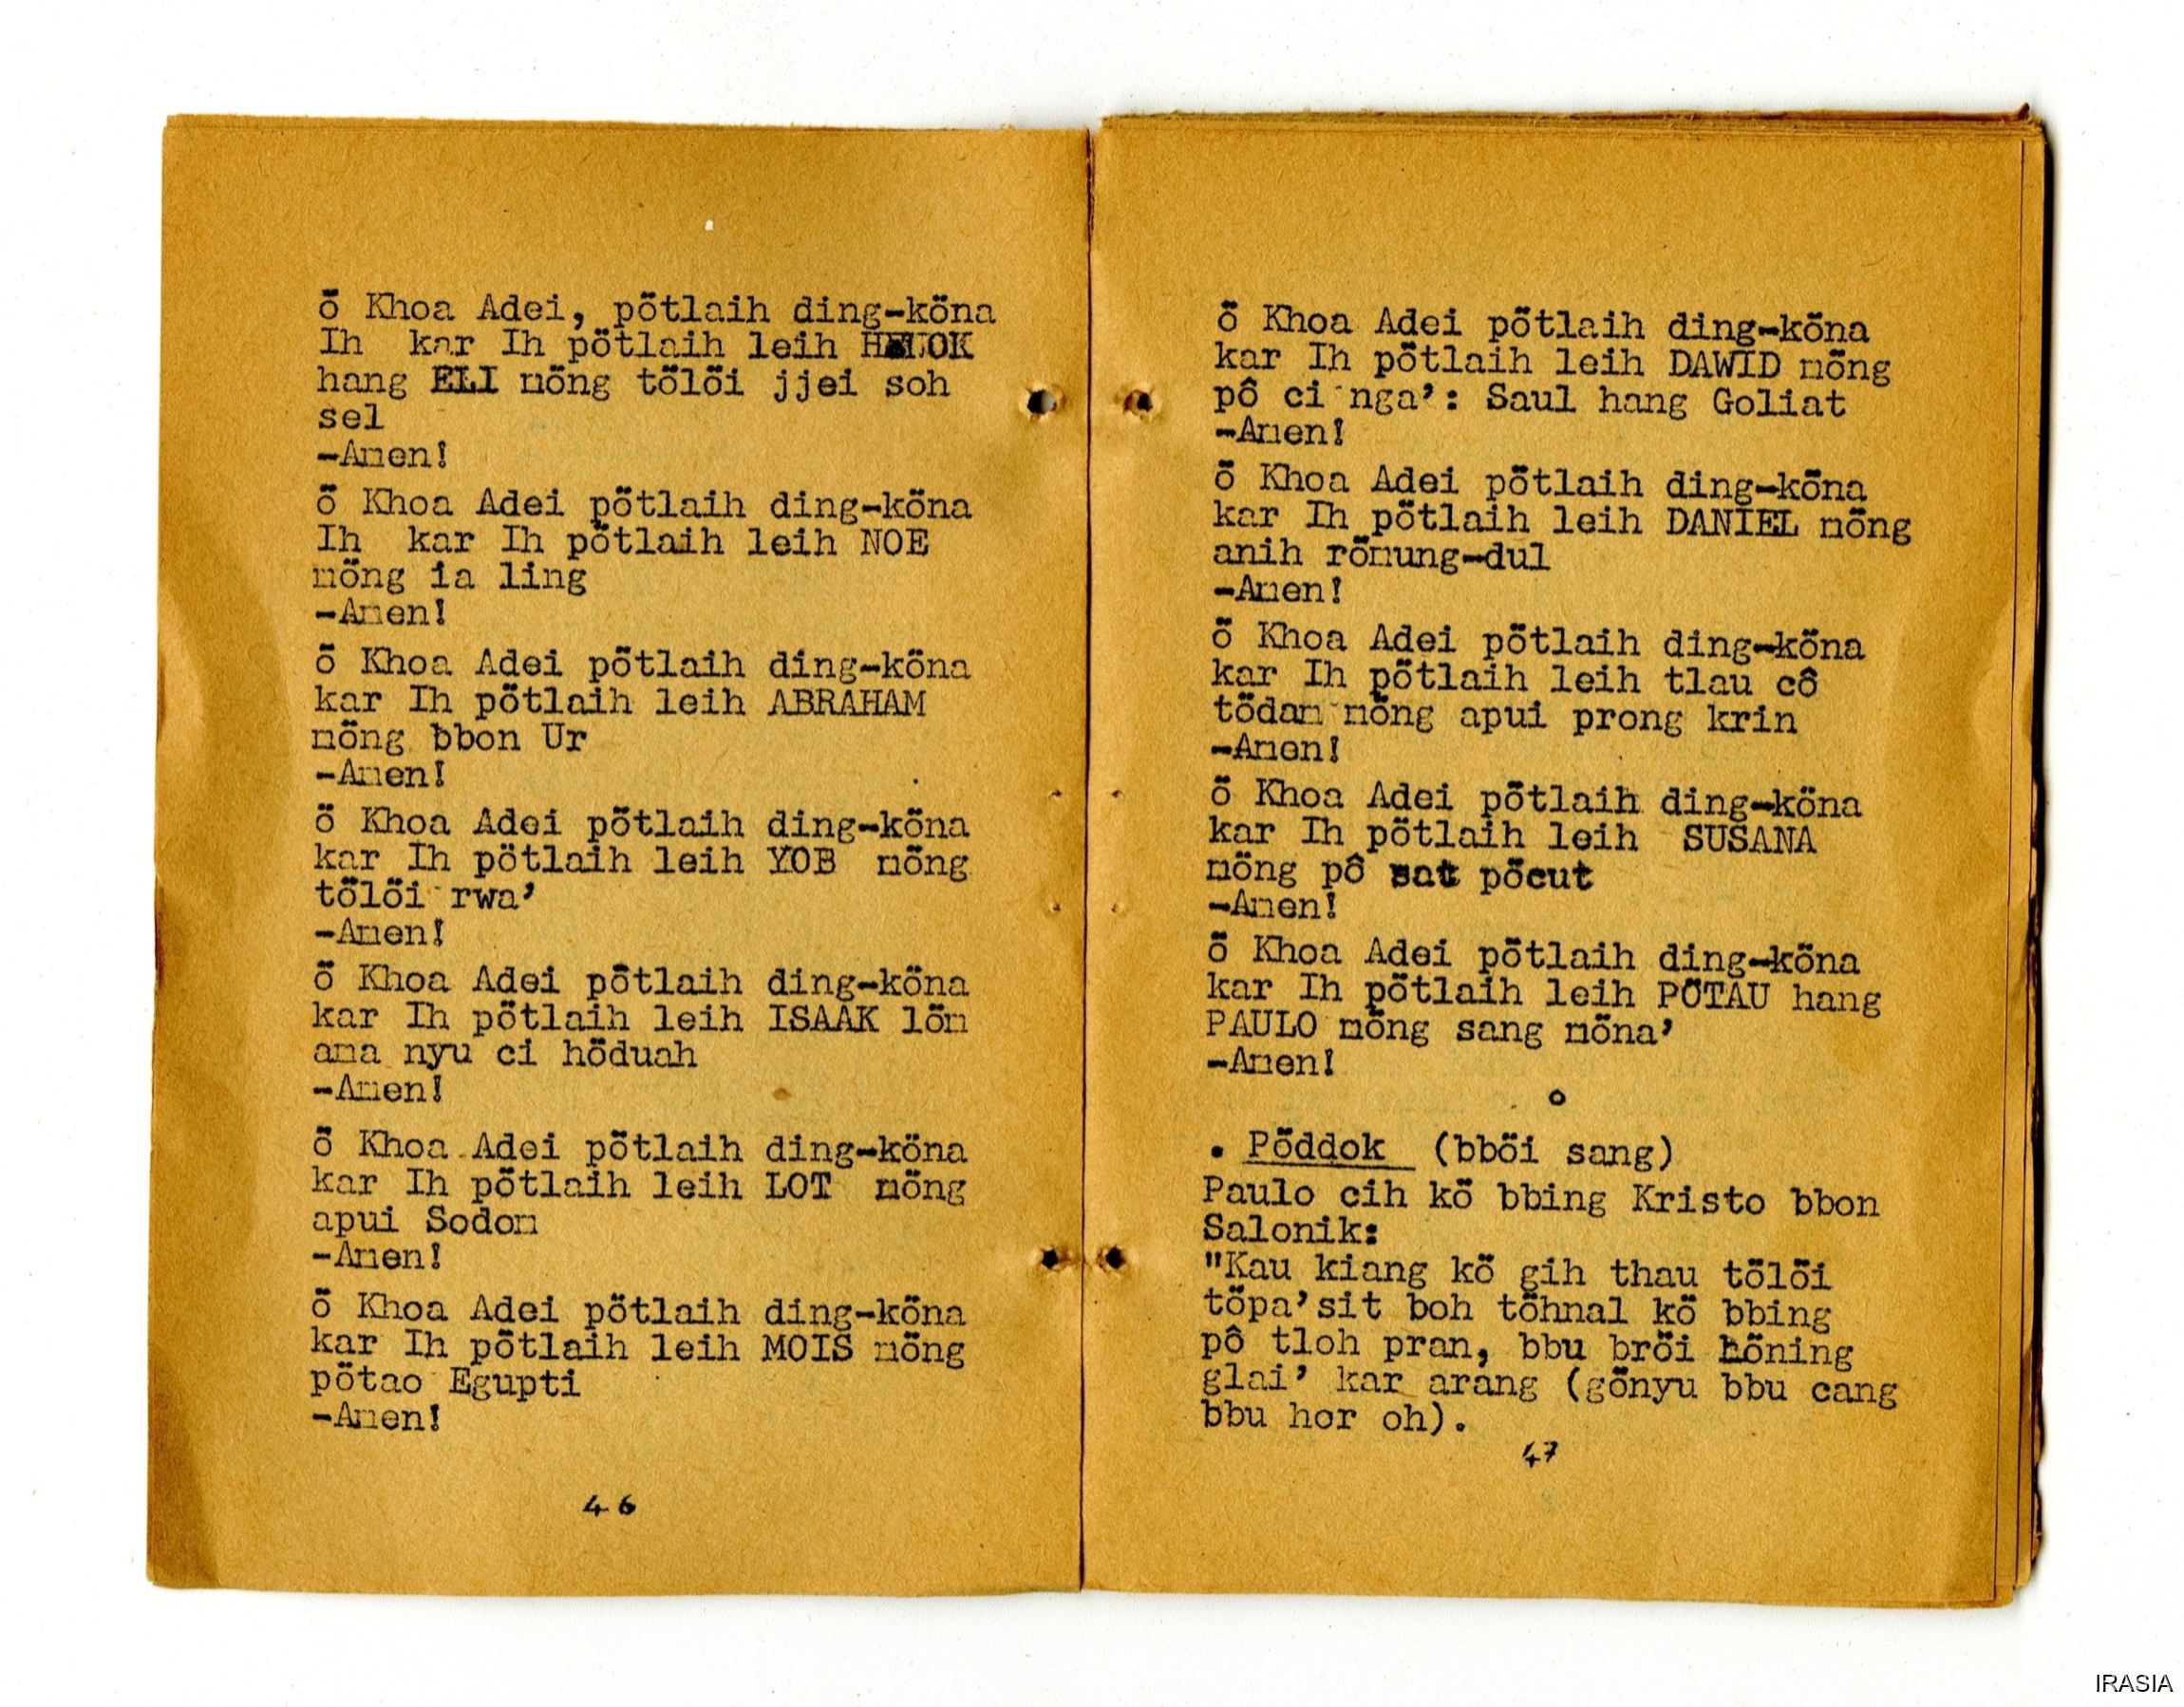 ö Khoa Adei, pötlaih ding-köna
Ih kar Ih pötlaih leih HENOK
hang ELI möng tölöi jjei soh
sel
-Amen!
ö Khoa Adei pötlaih ding-köna
Ih kar Ih pötlaih leih NOE
möng ia ling
-Amen!
ö Khoa Adei pötlaih ding-köna
kar Ih pötlaih leih ABRAHAM
möng bbon Ur
-Amen!
ö Khoa Adei pötlaih ding-köna
kar Ih pötlaih leih YOB möng
tölöi rwa'
-Amen!
ö Khoa Adei pötlaih ding-köna
kar Ih pötlaih leih ISAAK löm
ama nyu ci höduah
-Amen!
ö Khoa Adei pötlaih ding-köna
kar Ih pötlaih leih LOT möng
apui Sodom
-Amen!
ö Khoa Adei pötlaih ding-köna
kar Ih pötlaih leih MOIS möng
pötao Egupti
-Amen!
46
ö Khoa Adei pötlaih ding-köna
kar Ih pötlaih leih DAWID möng
pô ci nga': Saul hang Goliat
-Amen!
ö Khoa Adei pötlaih ding-köna
kar Ih pötlaih leih DANIEL möng
anih römung-dul
-Amen!
ö Khoa Adei pötlaih ding-köna
kar Ih pötlaih leih tlau cô
tödam möng apui prong krin
-Amen!
ö Khoa Adei pötlaih ding-köna
kar Ih pötlaih leih SUSANA
möng pô sat pöcut
-Amen!
ö Khoa Adei pötlaih ding-köna
kar Ih pötlaih leih PÖTAU hang
PAULO möng sang möna'
-Amen!
o
. Pöddok (bböi sang)
Paulo cih kö bbing Kristo bbon
Salonik:
"Kau kiang kö gih thau tölöi
töpa'sit boh töhnal kö bbing
pô tloh pran, bbu bröi höning
glai' kar arang (gönyu bbu cang
bbu hor oh).
47
IRASIA